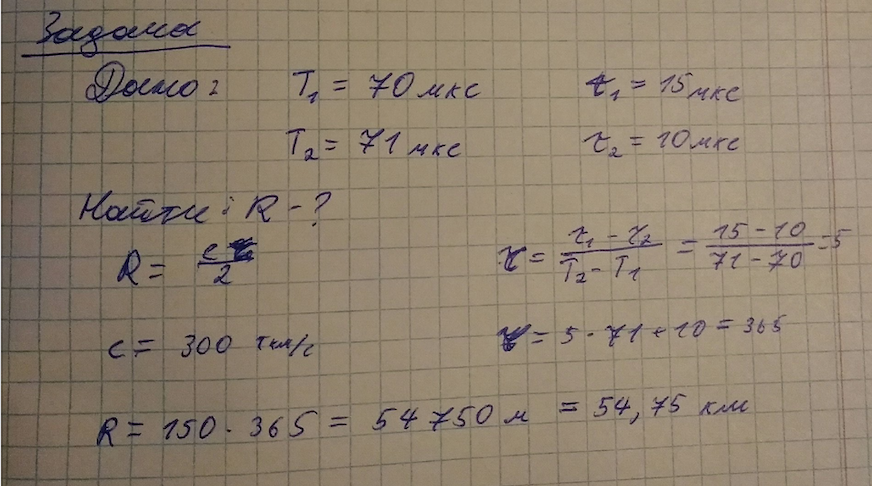 Задача
Дано: T₁ = 70 мкс τ₁ = 15 мкс
T₂ = 71 мкс τ₂ = 10 мкс
Найти: R - ?
R = cτ/2 τ = (τ₁ - τ₂)/(T₂ - T₁) = (15 - 10)/(71 - 70) = 5
c = 300 ткм/с = 5 · 71 + 10 = 365
R = 150 · 365 = 54 750 м = 54,75 км